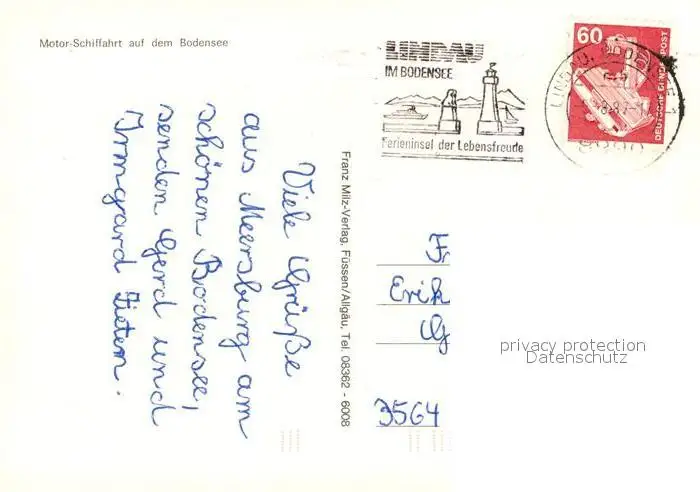 Motor-Schiffahrt auf dem Bodensee
LINDAU
IM BODENSEE
Ferieninsel der Lebensfreude
60
DEUTSCHE BUNDESPOST
LINDAU
Viele Grüße
aus Meersburg am
schönen Bodensee,
senden Gerd und
Irmgard Zietem.
Franz Milz-Verlag, Füssen/Allgäu, Tel. 08362 - 6008
Fr
Erik
G
3564
privacy protection
Datenschutz